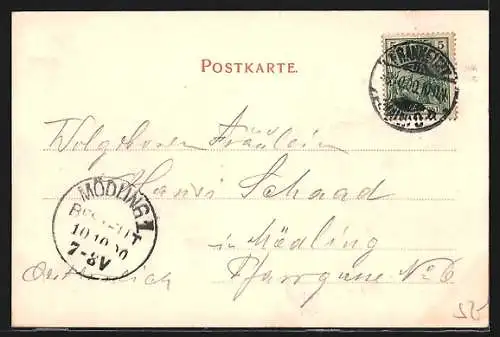 POSTKARTE.
5
FRANKFURT
Wolgeboren Fräulein
Hansi Schaad
in Mödling
Pfarrgasse No 6
Österreich
MÖDLING 1
BESTELLT
10.10.00
7-8V